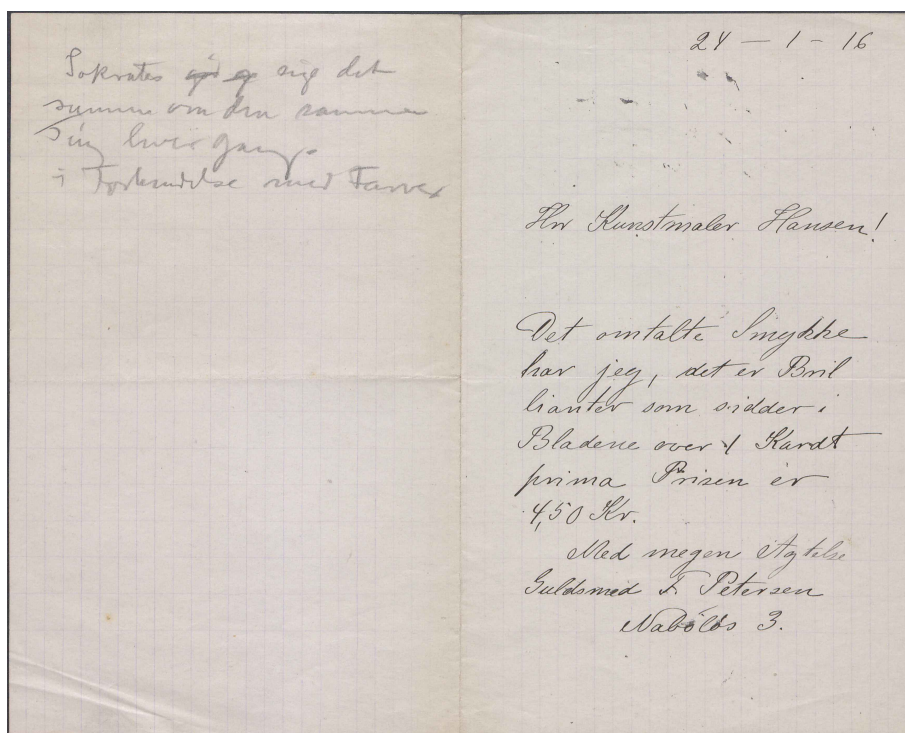 Sokrates sige det
samme om den samme
Ting hver Gang.
i Forbindelse med Farver
24 — 1 – 16
Hr Kunstmaler Hansen!
Det omtalte Smykke
har jeg, det er Bril
lianter som sidder i
Bladene over 1 Karat
prima Prisen er
450 Kr.
Med megen Agtelse
Guldsmed F. Petersen
Naboløs 3.